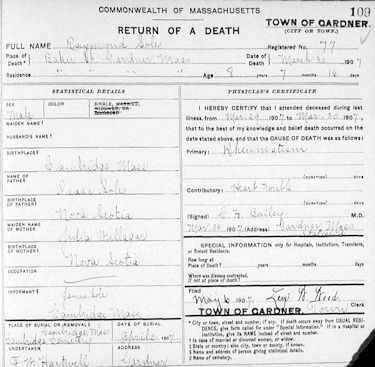 COMMONWEALTH OF MASSACHUSETTS
109
RETURN OF A DEATH
TOWN OF GARDNER.
(CITY OR TOWN.)
FULL NAME Raymond Soles
Registered No. 77
Place of Death Baker St. Gardner Mass
Date of Death March 30, 1907
Residence " " " "
Age 8 years 7 months 16 days
STATISTICAL DETAILS
SEX COLOR SINGLE, MARRIED, WIDOWED OR DIVORCED
Male
MAIDEN NAME
HUSBAND'S NAME
BIRTHPLACE
Cambridge Mass
NAME OF FATHER
Isaac Soles
BIRTHPLACE OF FATHER
Nova Scotia
MAIDEN NAME OF MOTHER
Julia
BIRTHPLACE OF MOTHER
Nova Scotia
OCCUPATION
INFORMANT
Soles
Cambridge Mass
PLACE OF BURIAL OR REMOVAL DATE OF BURIAL
Cambridge Mass
Cambridge Cemetery April 1907
UNDERTAKER ADDRESS
F. H. Hartwell Gardner
PHYSICIAN'S CERTIFICATE
I HEREBY CERTIFY that I attended deceased during last
illness, from Mar. 29 1907 to Mar. 30 1907,
that to the best of my knowledge and belief death occurred on the
date stated above, and that the CAUSE OF DEATH was as follows:
Primary: Rheumatism
(DURATION) DAYS
Contributory: Heart
(DURATION) DAYS
(Signed) Bailey M.D.
Mar. 30 1907 (Address) Gardner, Mass
SPECIAL INFORMATION only for Hospitals, Institutions, Transients, or Recent Residents.
How long at Place of Death? years months days
Where was disease contracted, if not at place of death?
Filed
May 6, 1907. Wood Clerk
TOWN OF GARDNER.
* City or town, street and number, if any. If death occurs away from USUAL RESIDENCE, give facts called for under "Special Information." If in a Hospital or Institution, give its NAME instead of street and number.
† In case of married or divorced woman, or widow.
‡ State or country; also city, town or county, if known.
§ Name and address of person giving statistical details.
|| Name of cemetery.